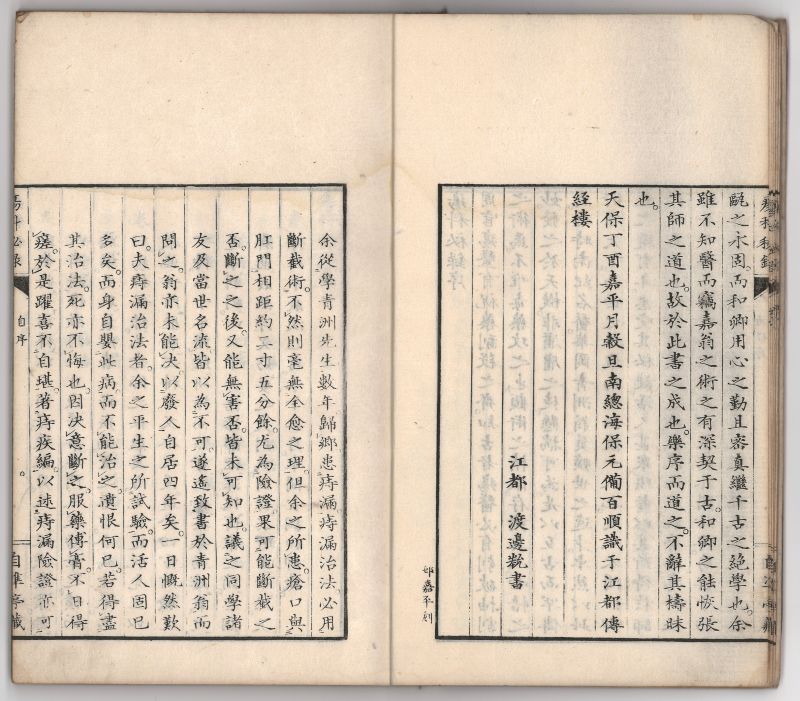 毗之永固。而和卿用心之勤且密真繼千古之絕學也。余
雖不知醫而竊嘉翁之術之有深契于古。和卿之能恢張
其師之道也。故於此書之成也。樂序而道之。不辭其檮昧
也。
天保丁酉嘉平月穀旦南總海保元備百順識于江都傳
經樓
江都 渡邊觥書
邨嘉平刻
余從學青洲先生數年歸鄉患痔漏。痔漏治法必用
斷截術。不然則毫無全愈之理。但余之所患。瘡口與
肛門相距約二寸五分餘。尤為險證。果可能斷截之
否。斷之之後。又能無害否。皆未可知也。議之同學諸
友及當世名流。皆以為不可。遂遙致書於青洲翁而
問之。翁亦未能決。以廢人自居四年矣。一日慨然歎
曰。夫痔漏治法者。余之平生之所試驗。而活人固已
名矣。而身自嬰此病而不能治之。遺恨何已。若得盡
其治法。死亦不悔也。因決意斷之。服藥傅膏。不日得
瘥。於是躍喜不自堪。著痔疾編。以述痔漏險證亦可
瘍科秘錄
自序
自準亭藏